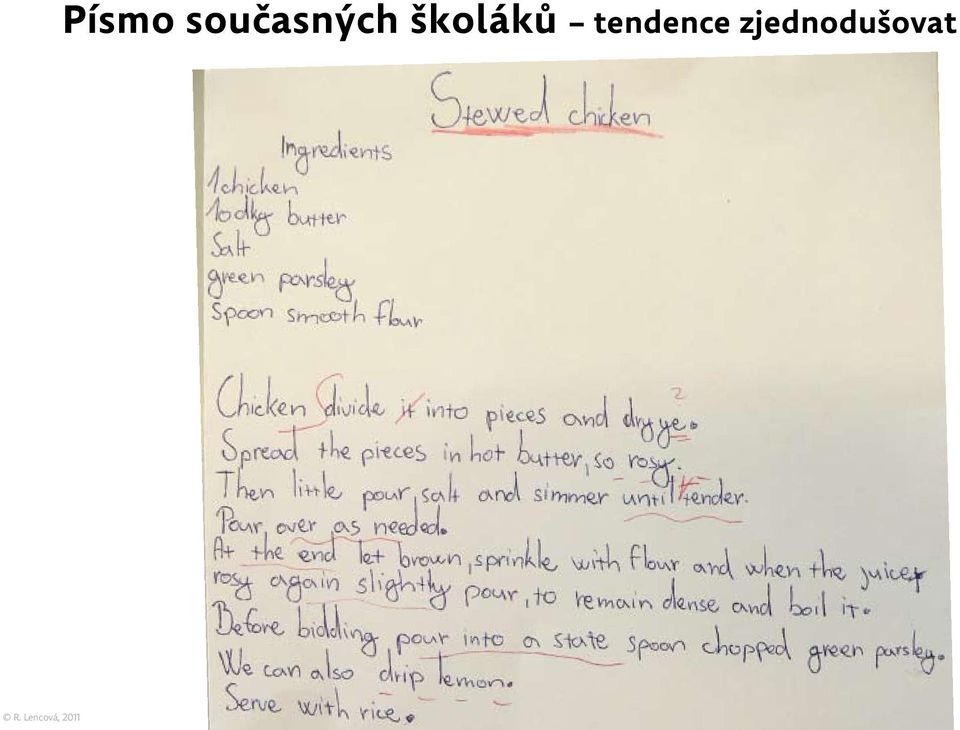 Písmo současných školáků – tendence zjednodušovat
Stewed chicken
Ingredients
1chicken
10dkg butter
Salt
green parsley
Spoon smooth flour
Chicken divide it into pieces and dry ye.
2
Spread the pieces in hot butter, so rosy.
Then little pour, salt and simmer until tender.
Pour over as needed.
At the end let brown, sprinkle with flour and when the juicer
rosy again slightly pour, to remain dense and boil it.
Before bidding pour into a state spoon chopped green parsley.
We can also drip lemon.
Serve with rice.
© R. Lencová, 2011